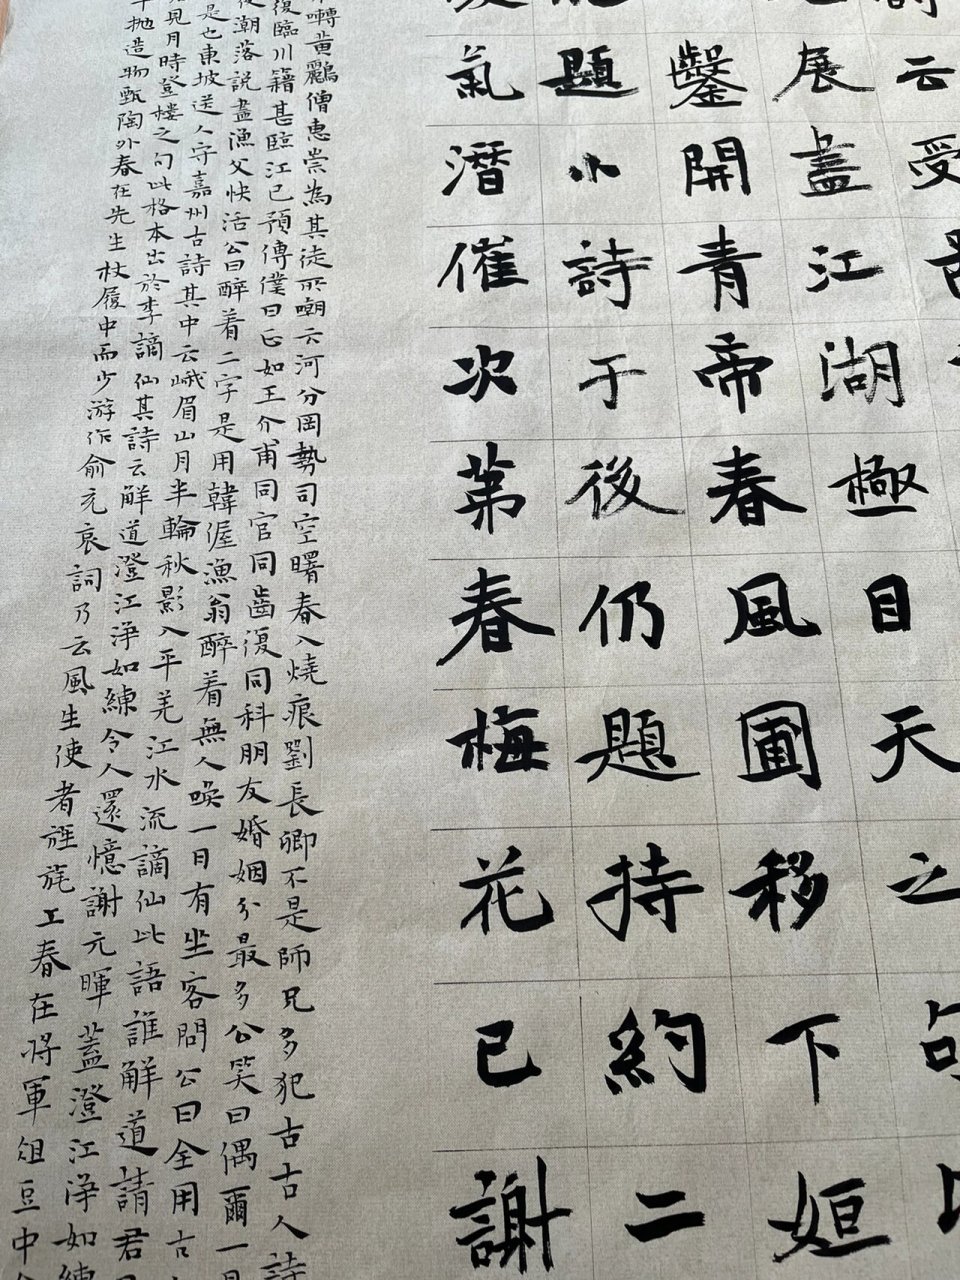 云受
展盡江湖極目天之句
鑿開青帝春風圃移下姮
題小詩于後仍題持約二
氣潛催次第春梅花已謝
囀黃鸝僧惠崇為其徒所嘲云河分岡勢司空曙春入燒痕劉長卿不是師兄多犯古古人詩
復臨川籍甚臨江已預傳僕曰正如王介甫同官同齒復同科朋友婚姻分最多公笑曰偶爾一
潮落說盡漁父快活公曰醉着二字是用韓偓漁翁醉着無人喚一日有坐客問公曰全用古
是也東坡送人守嘉州古詩其中云峨眉山月半輪秋影入平羌江水流謫仙此語誰解道請君
見月時登樓之句此格本出於李謫仙其詩云解道澄江淨如練令人還憶謝元暉蓋澄江淨如練
拋造物甄陶外春在先生杖履中而少游作俞元哀詞乃云風生使者旌旄上春在將軍俎豆中